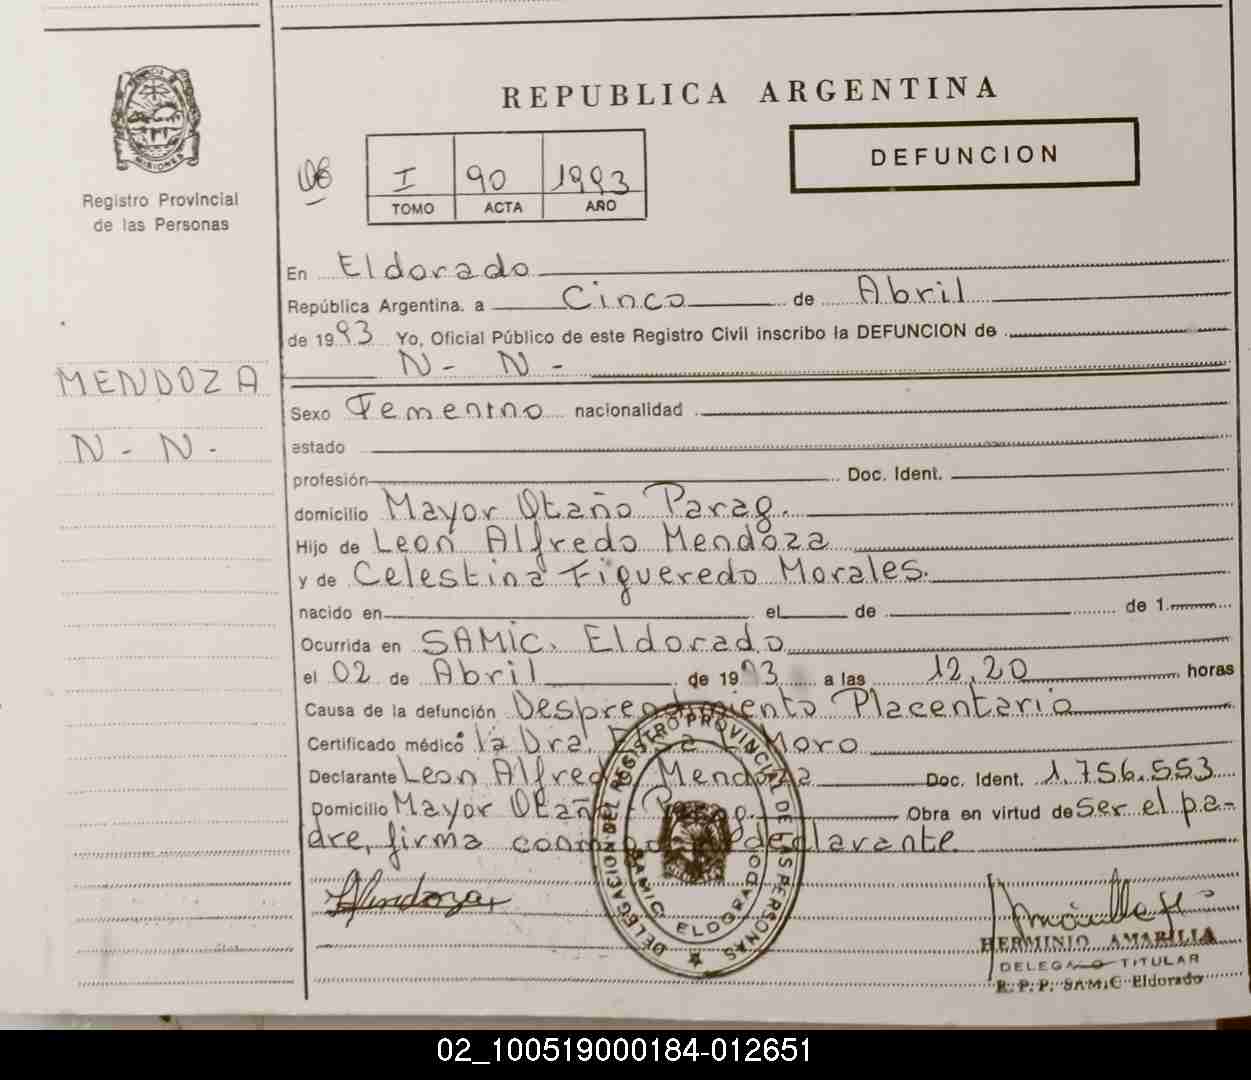 REPUBLICA ARGENTINA
DEFUNCION
PROVINCIA DE MISIONES
Registro Provincial
de las Personas
I 90 1993
TOMO ACTA AÑO
En Eldorado
República Argentina. a Cinco de Abril
de 1993 Yo, Oficial Público de este Registro Civil inscribo la DEFUNCION de
N - N -
MENDOZA
N - N -
Sexo Femenino nacionalidad
estado
profesión Doc. Ident.
domicilio Mayor Otaño Parag.
Hijo de Leon Alfredo Mendoza
y de Celestina Figueredo Morales.
nacido en el de de 1
Ocurrida en SAMIC. Eldorado
el 02 de Abril de 1993 a las 12,20 horas
Causa de la defunción Desprendimiento Placentario
Certificado médico la Dra. Moro
Declarante Leon Alfredo Mendoza Doc. Ident. 1.756.553
Domicilio Mayor Otaño Parag. Obra en virtud de Ser el pa-
dre, firma como declarante.
DELEGACION DEL REGISTRO PROVINCIAL DE LAS PERSONAS
SAMIC ELDORADO
LAMendoza
HERMINIO AMARILLA
DELEGADO TITULAR
R. P. P. SAMIC Eldorado
02_100519000184-012651